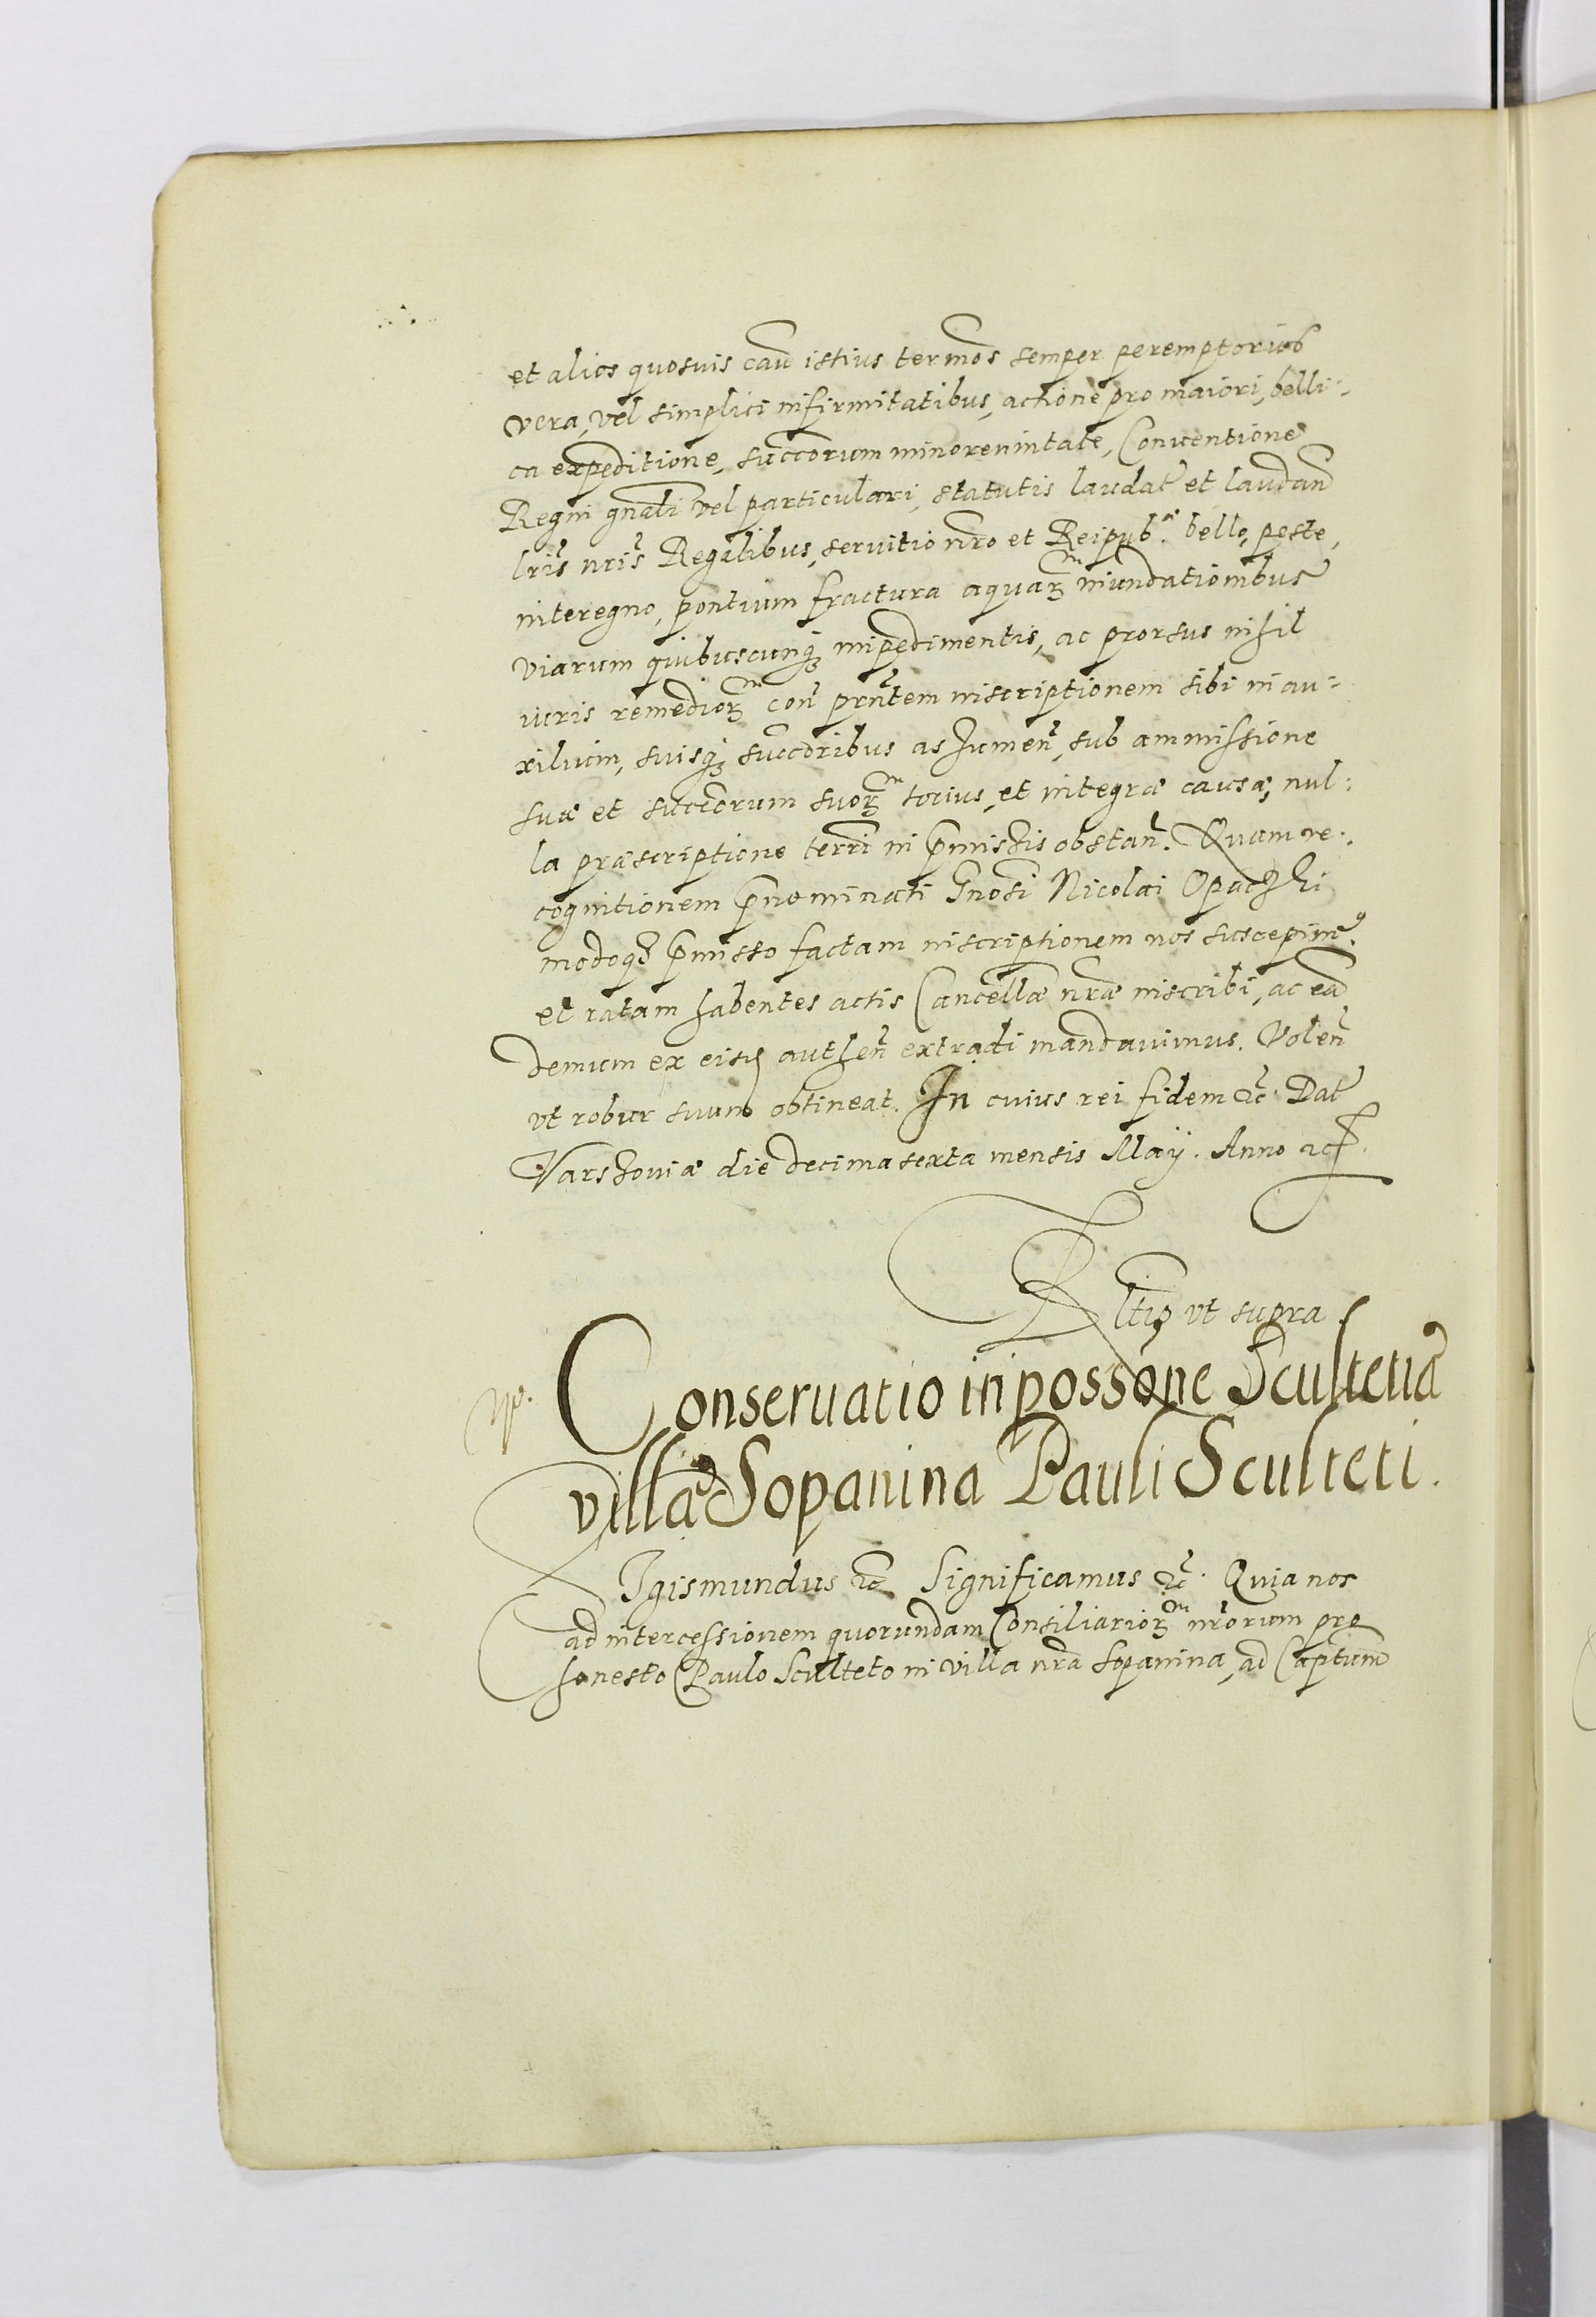 et alios quosvis cau istius termos semper peremptorios
vera, vel simplici infirmitatibus, actione pro maiori, belli-
ca expeditione, succorum minorennitate, Conventione
Regni gnali vel particulari, statutis laudat et laudan
lris nris Regalibus, servitio nro et Reipub. bello, peste,
interegno, pontium fractura aquarum inundationibus
viarum quibuscunq impedimentis, ac prorsus nihil
iuris remediorum con prntem inscriptionem sibi in au-
xilium, suisq succoribus assumen, sub ammissione
suæ et succorum suorum totius, et integræ causæ, nul-
la præscriptione terri in præmissis obstan. Quam re-
cognitionem prænominati Gnosi Nicolai Opaczki
modoq præmisso factam inscriptionem nos suscepime
et ratam habentes actis Cancellæ nræ inscribi, ac ea
demum ex eisd authen extradi mandavimus. Volen
ut robur suum obtineat. In cuius rei fidem etc. Dat
Varshoviæ die decima sexta mensis May. Anno etc.
Rltio ut supra.
Conservatio in possone Scultetiæ
villæ Sopanina Pauli Sculteti.
Sigismundus etc Significamus etc. Quia nos
ad intercessionem quorundam Consiliariorum nrorum pro
honesto Paulo Sculteto in villa nra Sopanina, ad Captum